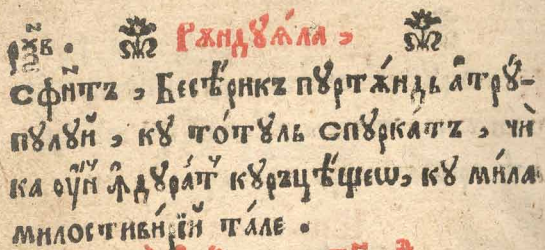 рн҃в. Рѫндуѧ́ла,
сфн҃тъ, Бесѣ́рикъ пꙋртѫ́ндь а҆ трꙋ́-
пꙋлꙋй, кꙋ то́тꙋль спꙋрка́тъ, чѝ
ка ᲂу҆́н ꙟ҆дꙋра́т кꙋръцѣ́щеѡ, кꙋ ми́ла
милостиви́рїй та́ле.